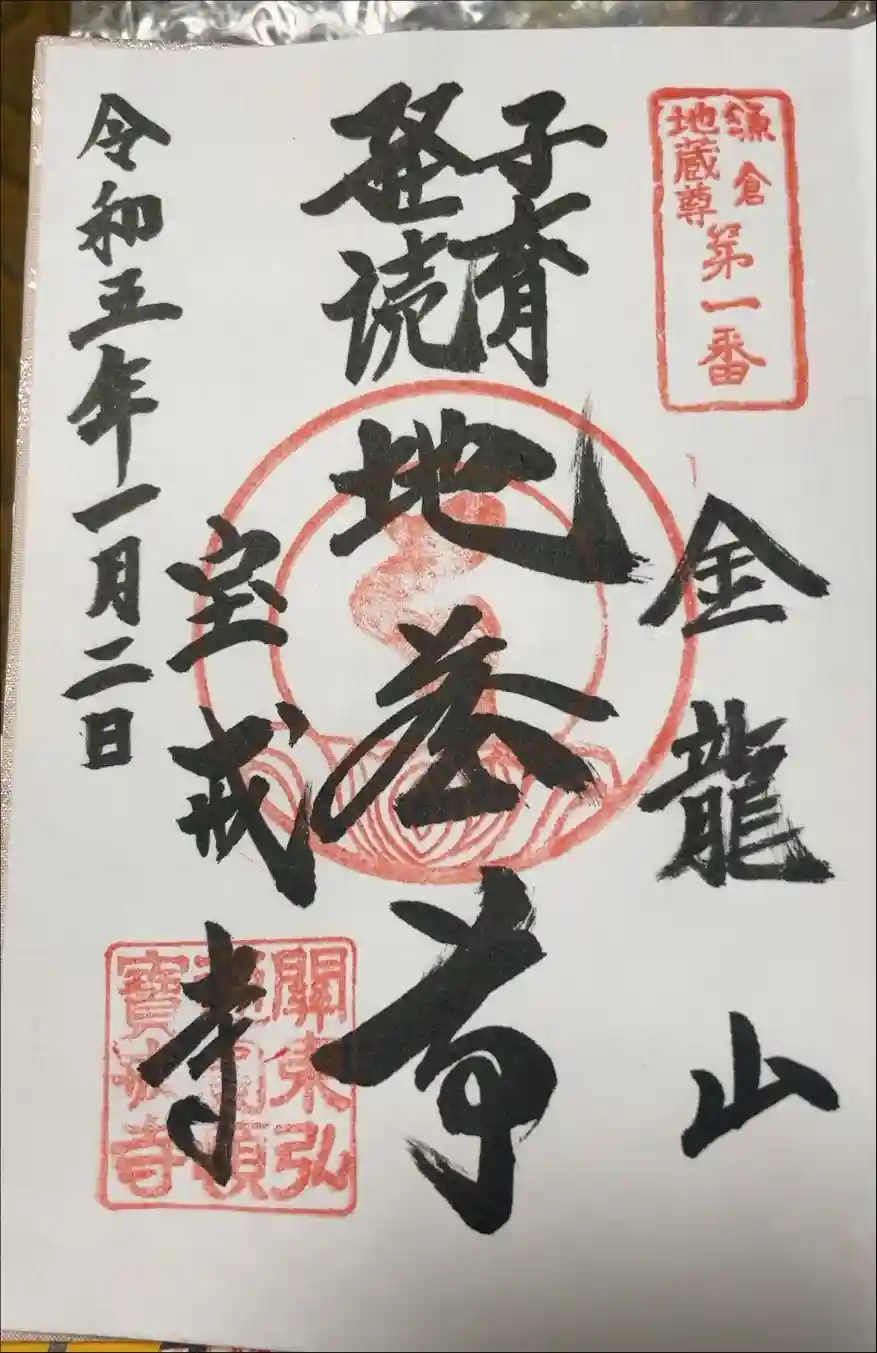 鎌倉
地蔵尊
第一番
金龍山
子育
経読
地蔵尊
宝戒寺
關東弘
通圓頓
寶戒寺
令和五年一月二日